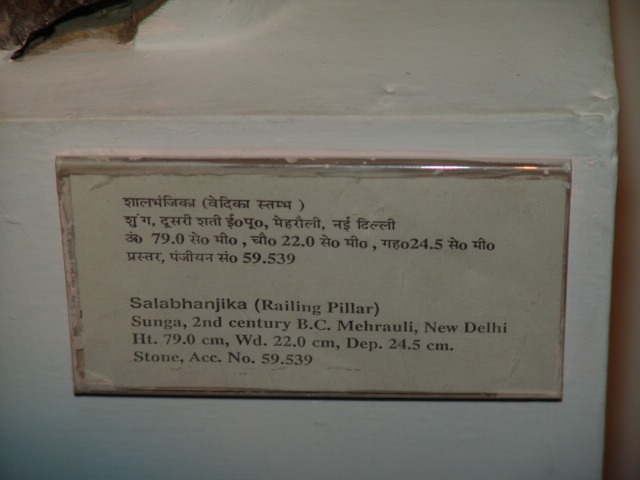 शालभंजिका (वेदिका स्तम्भ )
शुंग, दूसरी शती ई०पू०, मेहरौली, नई दिल्ली
ऊं० 79.0 से० मी० , चौ० 22.0 से० मी० , गह०24.5 से० मी०
प्रस्तर, पंजीयन सं० 59.539
Salabhanjika (Railing Pillar)
Sunga, 2nd century B.C. Mehrauli, New Delhi
Ht. 79.0 cm, Wd. 22.0 cm, Dep. 24.5 cm.
Stone, Acc. No. 59.539